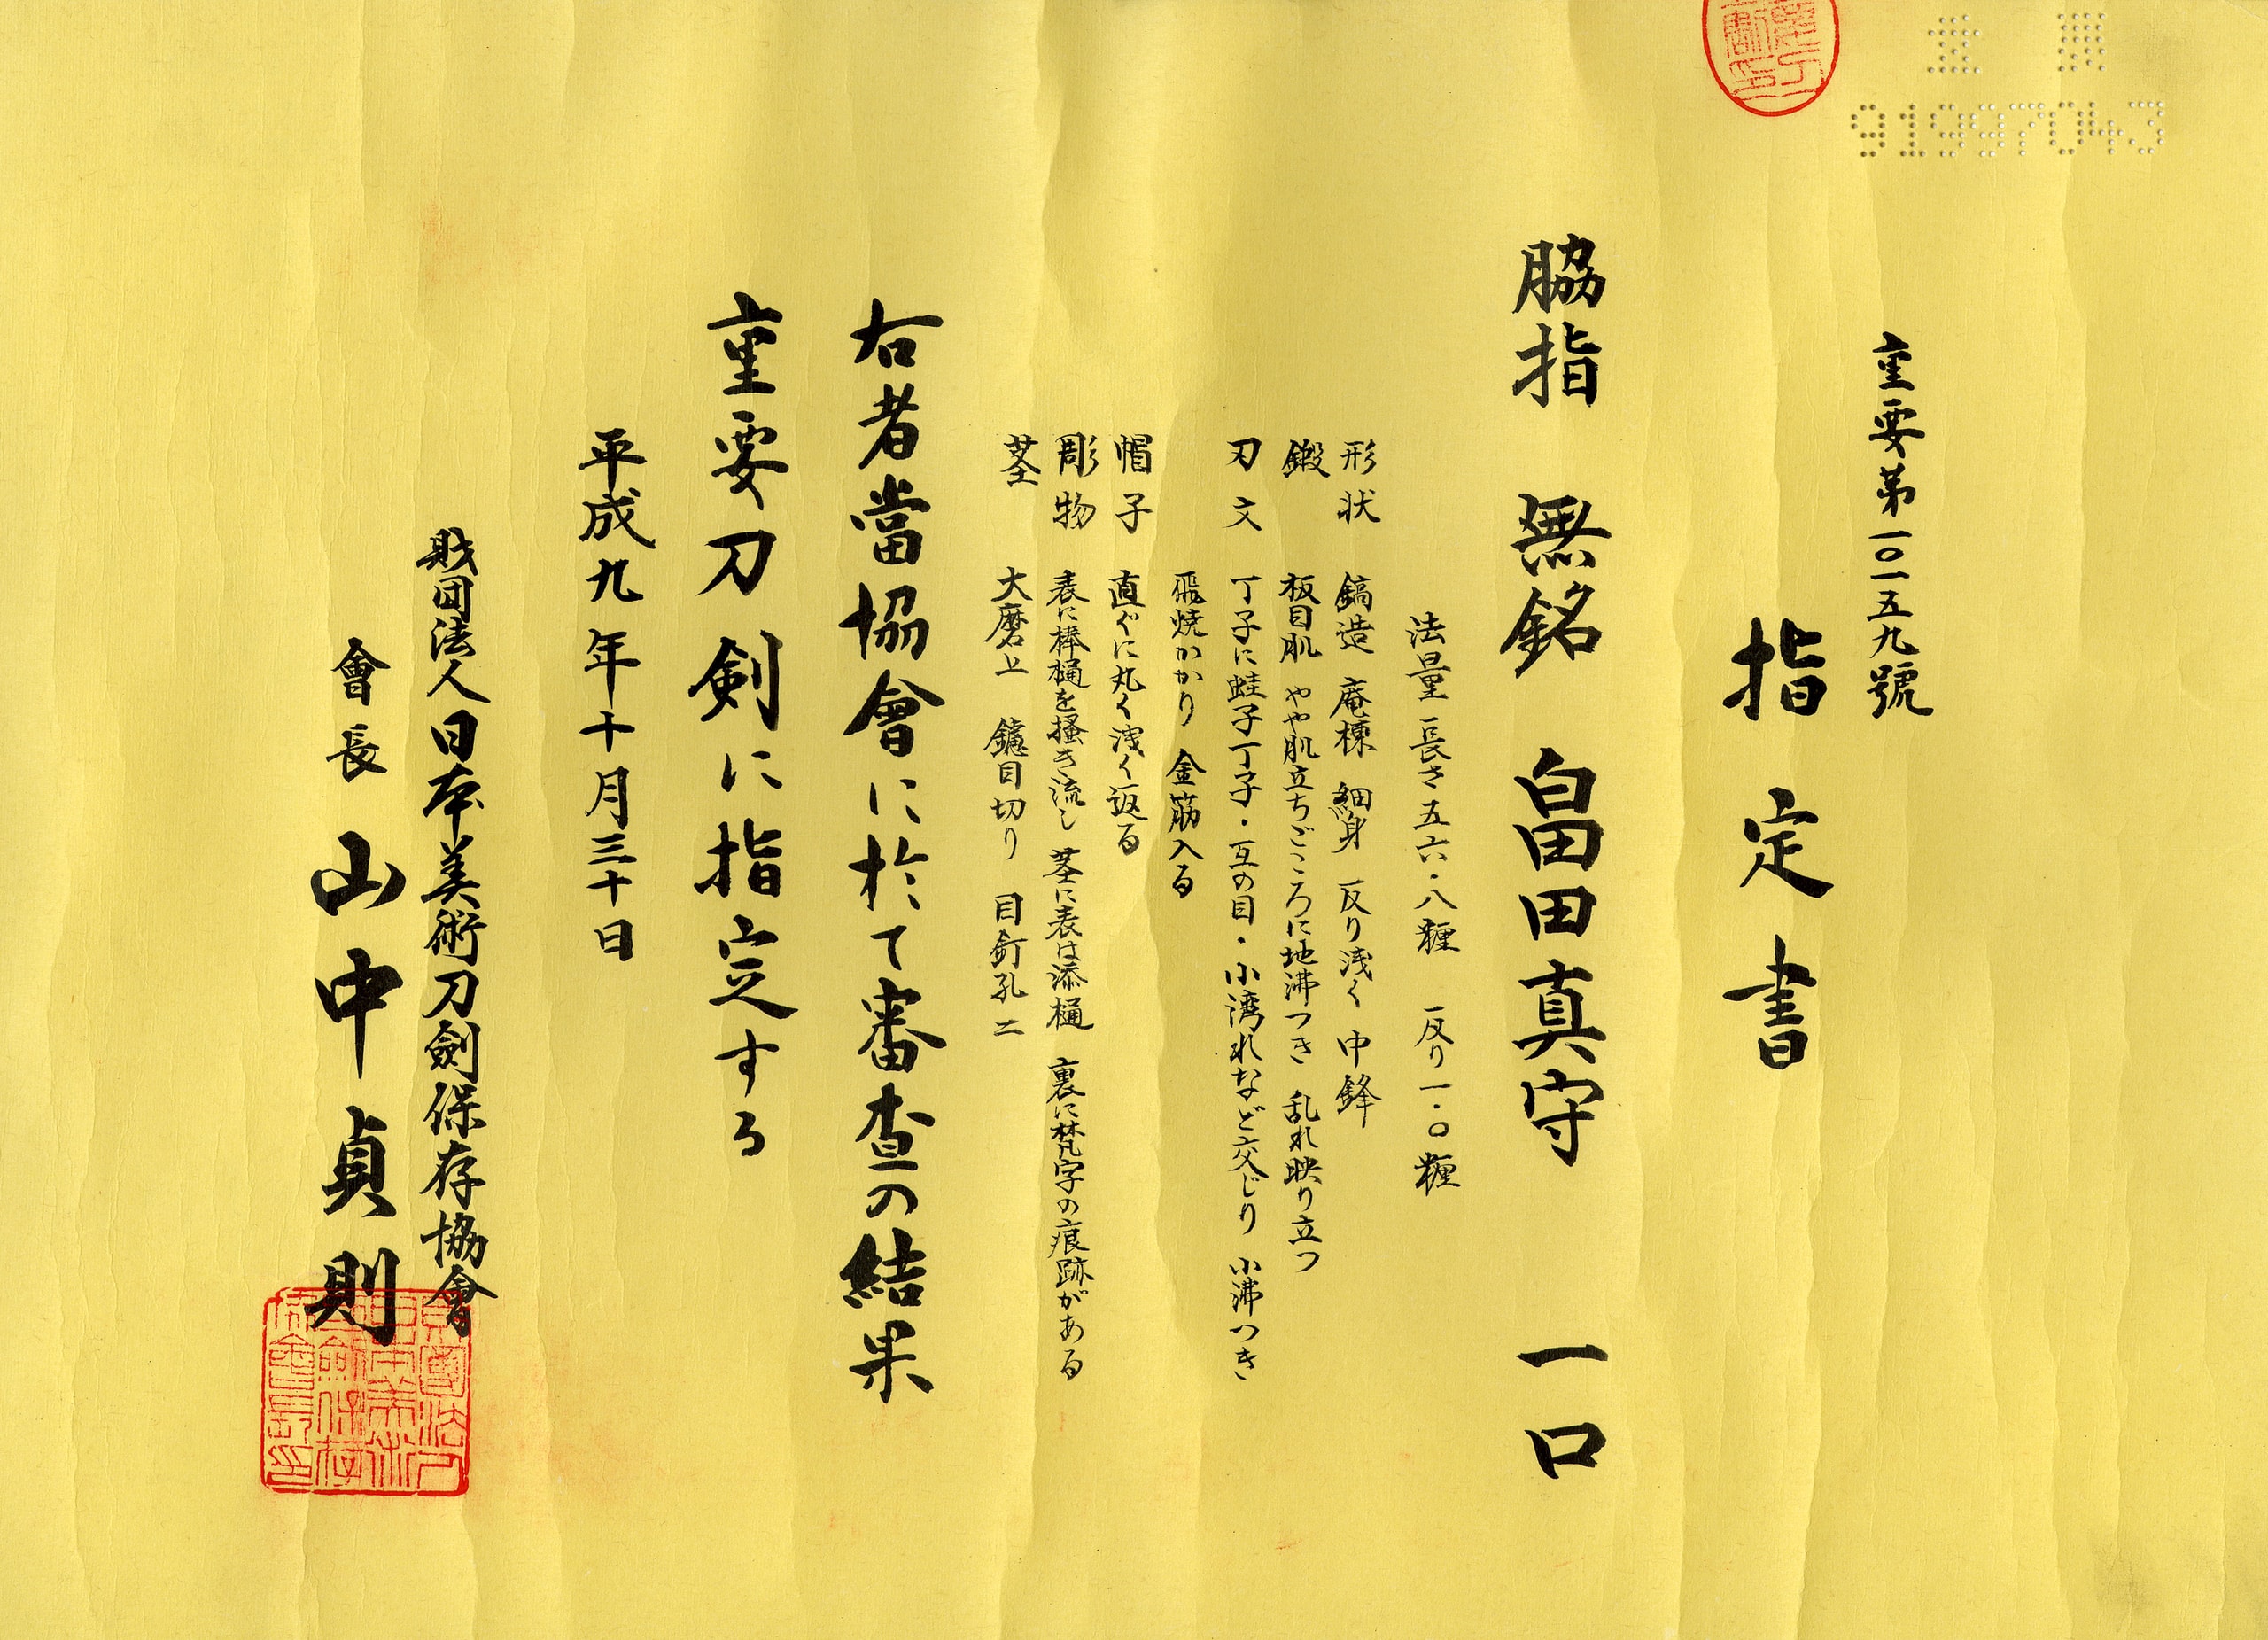 重要第一〇一五九號
指定書
脇指 無銘 畠田真守 一口
法量 長さ五六・八糎 反り一・〇糎
形状 鎬造 庵棟 細身 反り浅く 中鋒
鍛 板目肌 やや肌立ちごころに地沸つき 乱れ映り立つ
刃文 丁子に蛙子丁子・互の目・小湾れなど交じり 小沸つき
飛焼かかり 金筋入る
帽子 直ぐに丸く浅く返る
彫物 表に棒樋を掻き流し 茎に表は添樋 裏に梵字の痕跡がある
茎 大磨上 鑢目切り 目釘孔二
右者當協會に於て審査の結果
重要刀剣に指定する
平成九年十月三十日
財団法人日本美術刀剣保存協會
會長 山中貞則
91997043